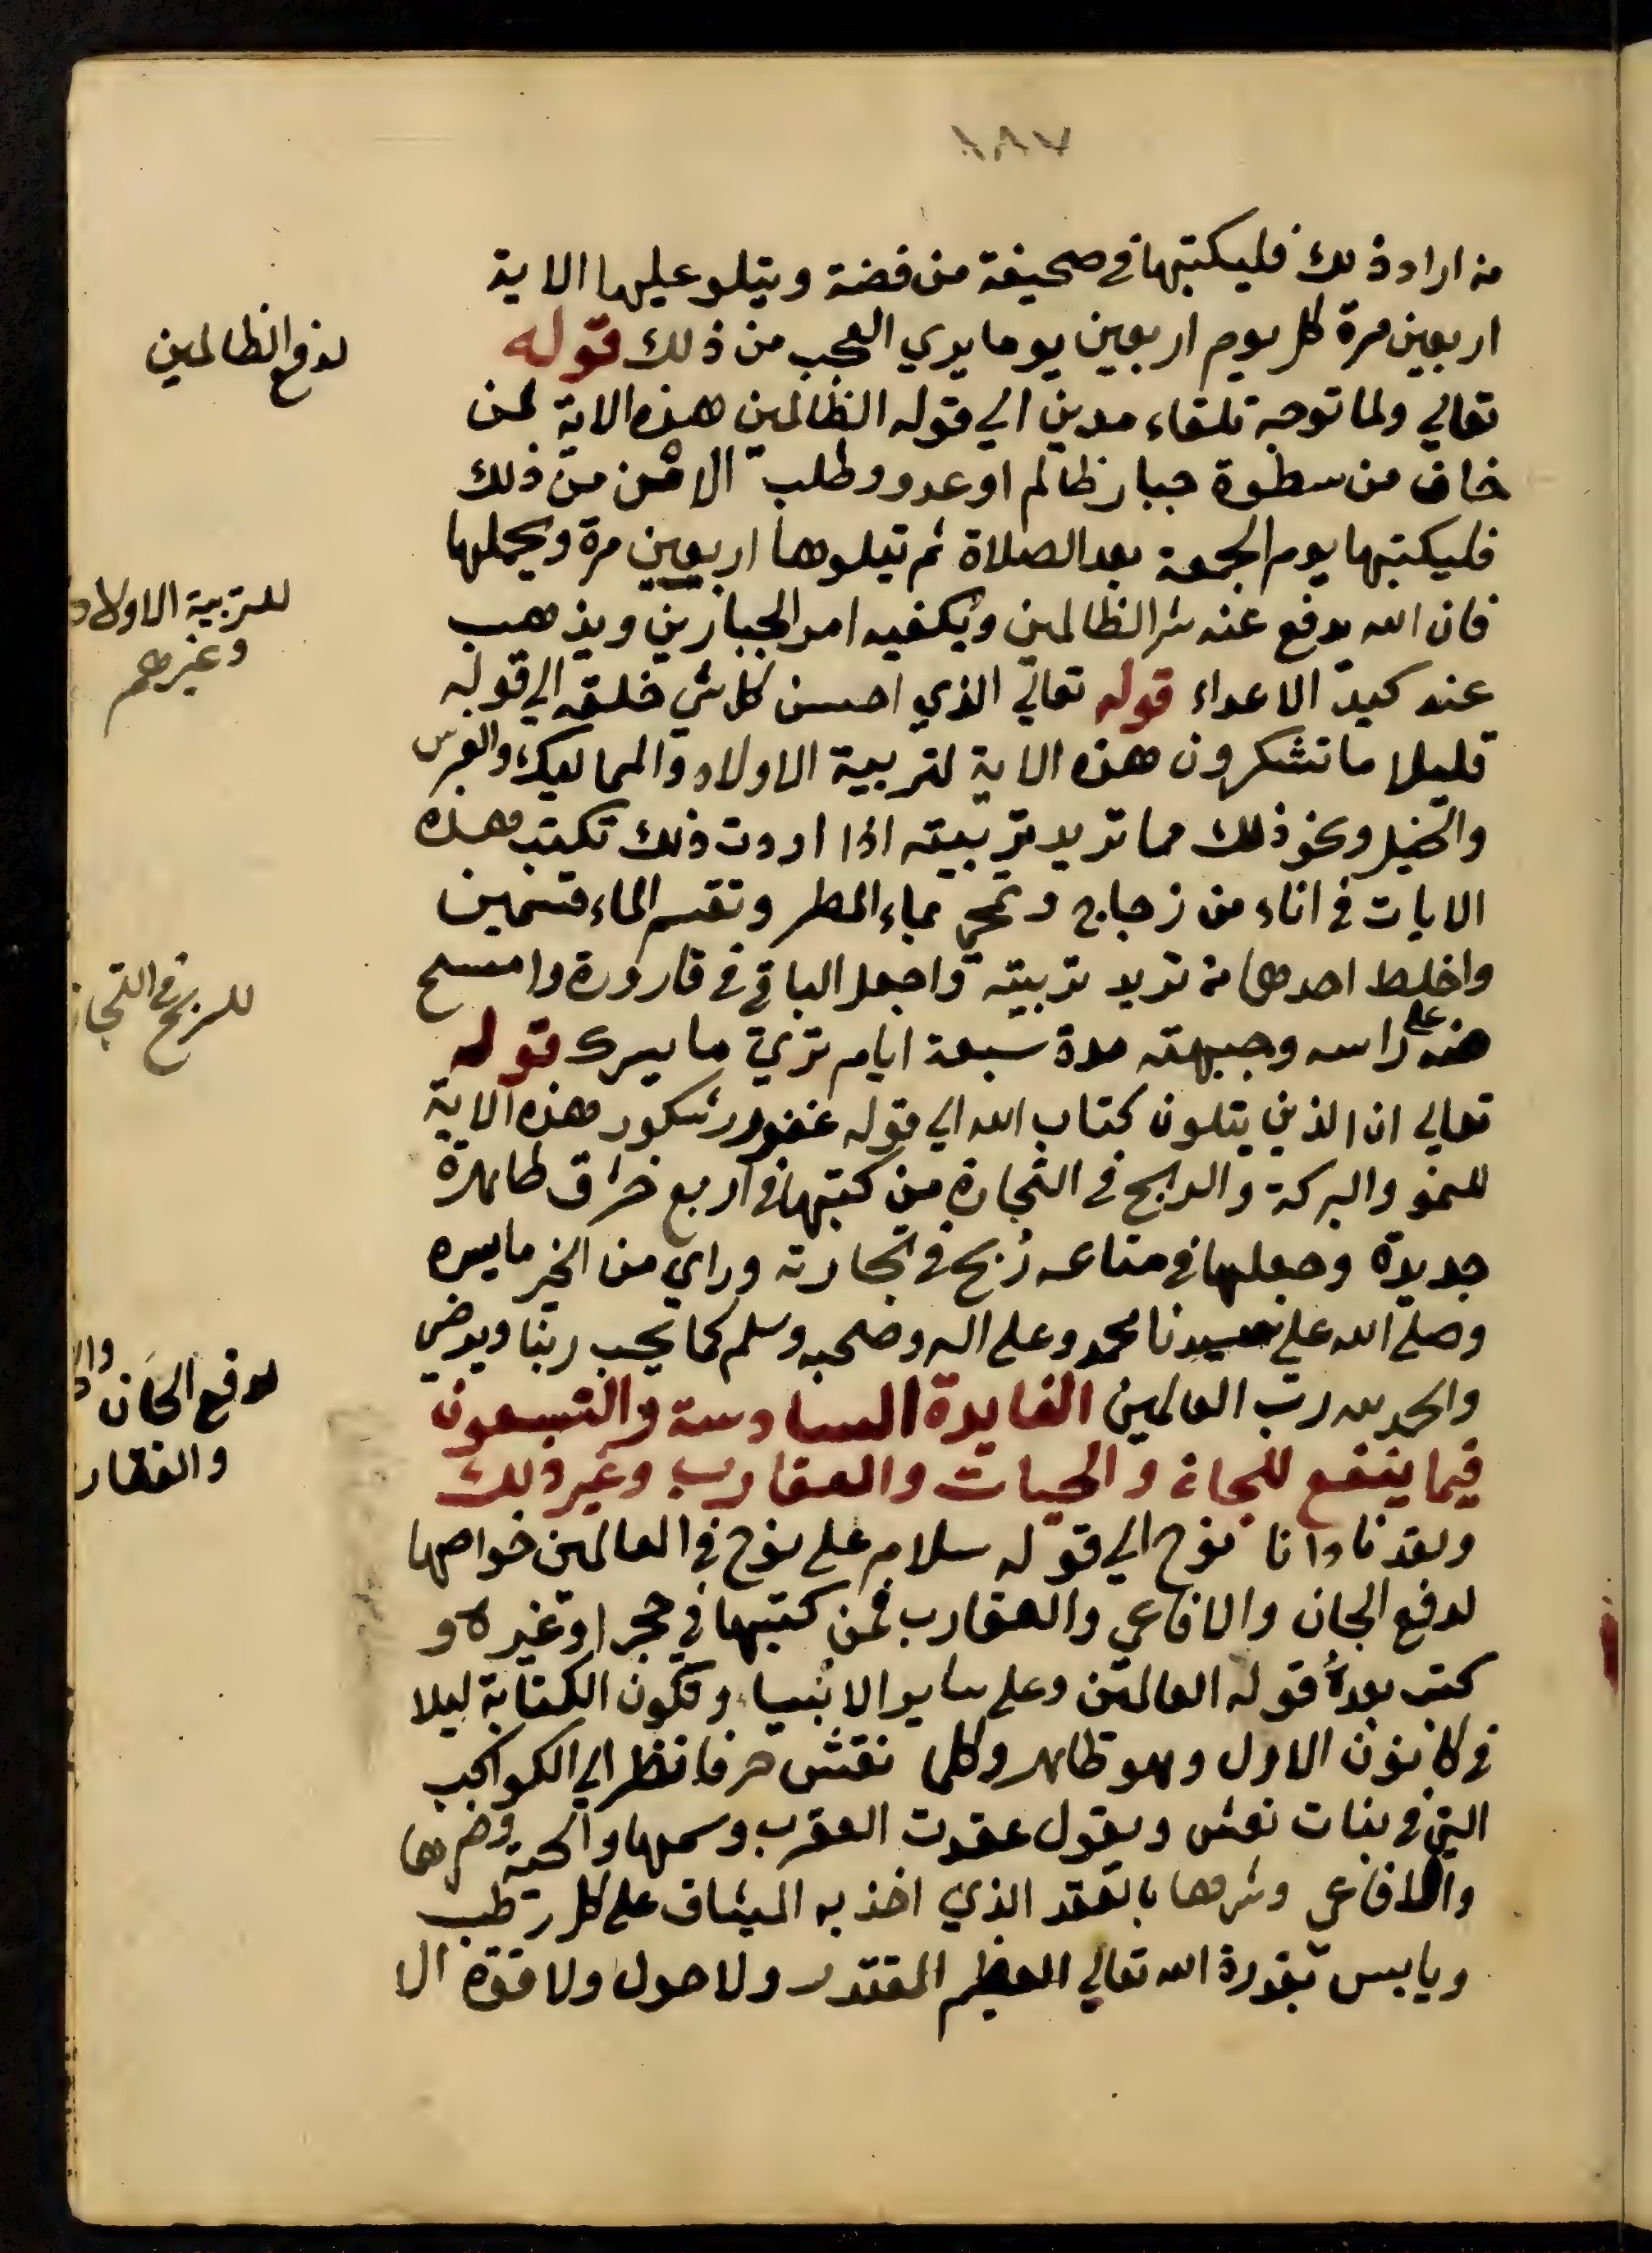 ١٨٧
من اراد ذلك فليكتبها في صحيفة من فضة ويتلو عليها الاية
اربعين مرة كل يوم اربعين يوما يري العجب من ذلك قوله
تعالي ولما توجه تلقاء مدين الي قوله الظالمين هذه الاية لمن
خاف من سطوة جبار ظالم او عدو وطلب الامن من ذلك
فليكتبها يوم الجمعة بعد الصلاة ثم تيلوها اربعين مرة ويحملها
فان الله يدفع عنه شر الظالمين ويكفيه امر الجبارين ويذهب
عنه كيد الاعداء قوله تعالي الذي احسن كل شي خلقه الي قوله
قليلا ما تشكرون هذه الاية لتربية الاولاد والمماليك والغرس
والخيل ونحو ذلك مما تريد تربيته اذا اردت ذلك تكتب هذه
الايات في اناء من زجاج وتمحي بماء المطر وتقسم الماء قسمين
واخلط احدهما من تريد تربيته واجعل الباقي في قارورة وامسح
منه علي راسه وجبهته مدة سبعة ايام تري ما يسرك قوله
تعالي ان الذين يتلون كتاب الله الي قوله غفور شكور هذه الاية
للنمو والبركة والربح في التجارة من كتبها في اربع خراق طاهرة
جديدة وجعلها في متاعه ربح في تجارته وراي من الخير ما يسره
وصلي الله علي سيدنا محمد وعلي اله وصحبه وسلم كما يحب ربنا ويرضي
والحمد لله رب العالمين الفايدة السادسة والتسعون
فيما ينفع للجان والحيات والعقارب وغير ذلك
ولقد نادانا نوح الي قوله سلام علي نوح في العالمين خواصها
لدفع الجان والافاعي والعقارب فمن كتبها في حجر او غيره و
كتب بعده قوله العالمين وعلي ساير الانبياء وتكون الكتابة ليلا
في كانون الاول وهو طاهر وكلما نقش حرفا نظر الي الكواكب
التي في بنات نعش ويقول عقدت العقرب وسمها والحية وضرها
والافاعي وشرها بالعقد الذي اخذ به الميثاق علي كل رطب
ويابس بقدرة الله تعالي العظيم المقتدر ولا حول ولا قوة الا
لدفع الظالمين
للتربية الاولاد
وغيرهم
للربح في التجا
لدفع الجان
والعقار